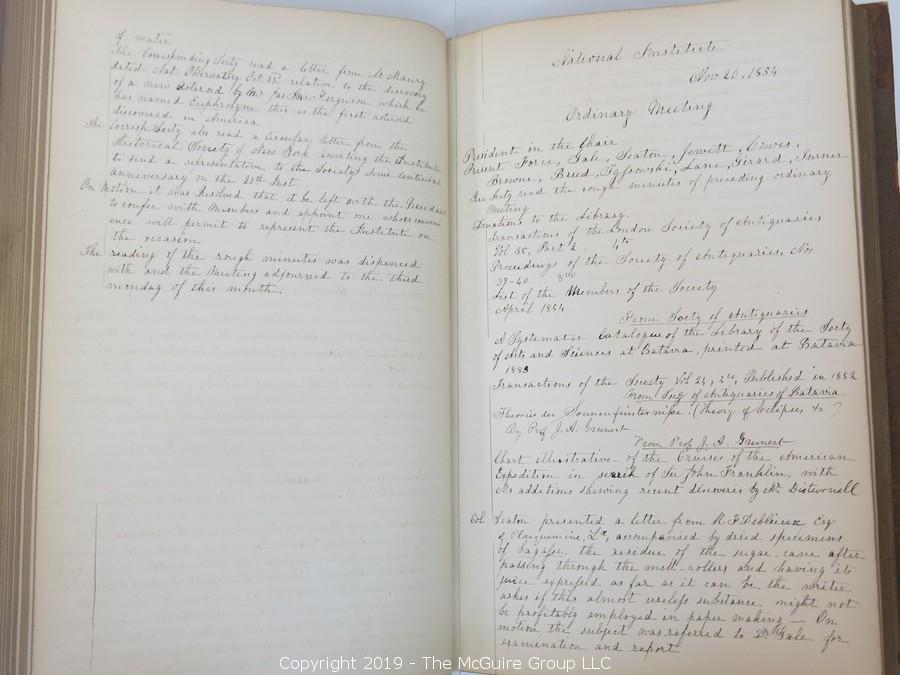 of water
The Corresponding Secty read a letter from Lt Maury
dated Nat Observatory Oct 25 relative to the discovery
of a new asteroid by Mr Jas Ferguson which he
has named Euphrosyne this is the first asteroid
discovered in America
The Corresh Secty also read a Circular letter from the
Historical Society of New York inviting the Institute
to send a representative to the Societys Semi-centennial
anniversary on the 20th Inst.
On Motion it was Resolved that it be left with the President
to confer with Members and appoint one whose conveni
ence will permit to represent the Institute on
the occasion
The reading of the rough minutes was dispensed
with and the Meeting adjourned to the third
monday of this month.
National Institute
Nov 20, 1854
Ordinary Meeting
President in the Chair
Present Force, Gale, Seaton, Jewett,
Browne, Breed, Lane, Girard, Turner
Rec Secty read the rough minutes of preceding ordinary
Meeting
Donations to the Library.
Transactions of the London Society of Antiquaries
Vol 35, Part 2. 4to
Proceedings of the Society of Antiquaries, Nos
37-40 8vo
List of the Members of the Society
April 1854
From Socty of Antiquaries
A Systematic Catalogue of the Library of the Socty
of Arts and Sciences at Batavia, printed at Batavia
Transactions of the Society Vol 24, 4to, Published in 1852
From Socy of Antiquaries of Batavia
Theorie der Sonnenfinsternisse. (Theory of Eclipses &c )
By Prof J. A. Grunert
From Prof J. A. Grunert
Chart illustrative of the Cruises of the American
Expedition in search of Sir John Franklin, with
Ms additions shewing recent discoveries by Mr Disturnell
Col Seaton presented a letter from Esq
of Plaquemine, La, accompanied by dried specimens
of bagasse, the residue of the sugar-cane after
passing through the mill-rollers and having its
juice expressed as far as it can be. the writer
askes if this almost useless substance might not
be profitably employed in paper making — On
motion the subject was referred to Dr Gale for
examination and report
Copyright 2019 - The McGuire Group LLC